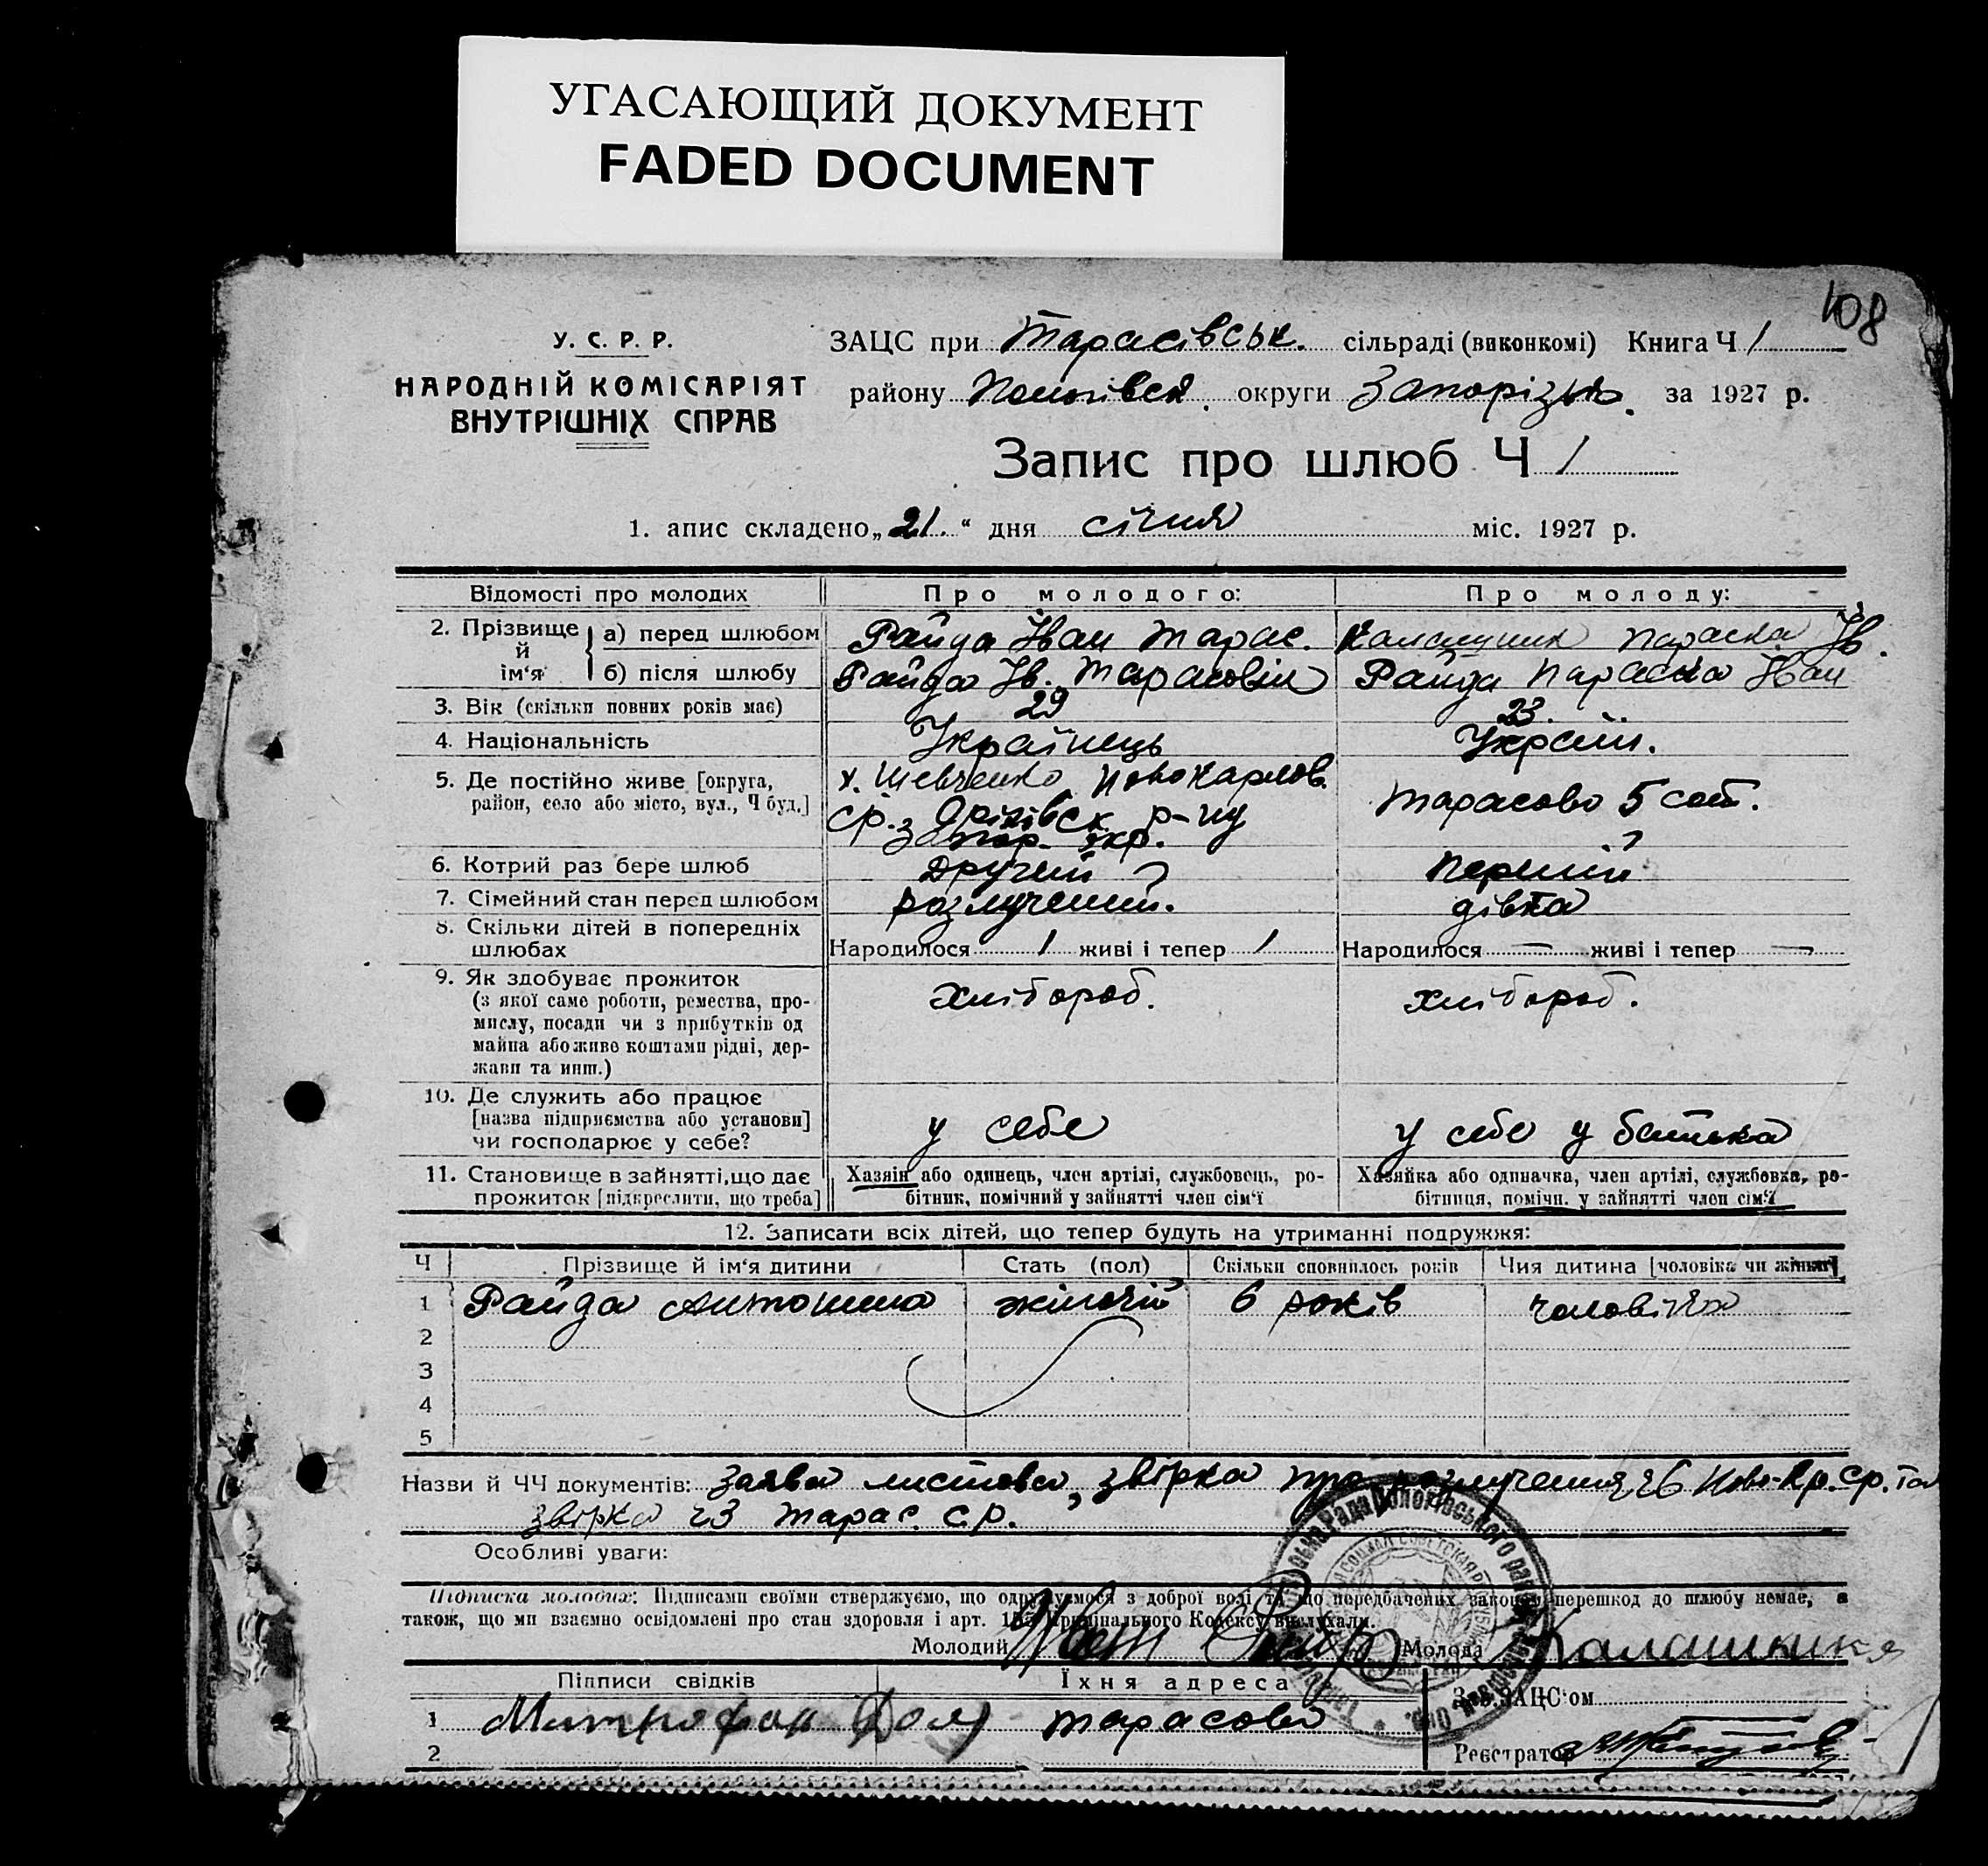 УГАСАЮЩИЙ ДОКУМЕНТ
FADED DOCUMENT
108
У. С. Р. Р.
НАРОДНІЙ КОМІСАРІЯТ
ВНУТРІШНІХ СПРАВ
ЗАЦС при Тарасівськ. сільраді (виконкомі) Книга Ч 1
району Пологівськ. округи Запорізьк. за 1927 р.
Запис про шлюб Ч 1
1. апис складено „21.“ дня січня міс. 1927 р.
Відомості про молодих Про молодого: Про молоду:
2. Прізвище й ім‘я а) перед шлюбом Райда Іван Тарас. Параска Ів.
б) після шлюбу Райда Ів. Тарасовіч Райда Параска Іван
3. Вік (скільки повних років має) 29 23.
4. Національність Українець Україн.
5. Де постійно живе [округа, район, село або місто, вул., Ч буд.] х. Шевченко Новокарлов.
ср. Оріхівськ р-ну Тарасово 5 сот.
Запор. окр.
6. Котрий раз бере шлюб Другий Перший
7. Сімейний стан перед шлюбом розлучений. дівка
8. Скільки дітей в попередніх шлюбах Народилося 1 живі і тепер 1 Народилося — живі і тепер —
9. Як здобуває прожиток хлібороб. хлібороб.
(з якої саме роботи, ремества, про-
мислу, посади чи з прибутків од
майна або живе коштами рідні, дер-
жави та инш.)
10. Де служить або працює
[назва підприємства або установи] у себе у себе у батька
чи господарює у себе?
11. Становище в зайнятті, що дає прожиток [підкреслити, що треба] Хазяін або одинець, член артілі, службовець, ро-
бітник, помічний у зайнятті член сім‘ї
Хазяйка або одиначка, член артілі, службовка, ро-
бітниця, помічн. у зайнятті член сім‘ї
12. Записати всіх дітей, що тепер будуть на утриманні подружжя:
Ч Прізвище й ім‘я дитини Стать (пол) Скільки сповнилось років Чия дитина [чоловіка чи жінки]
1 Райда Антонина жіночій 6 років чоловіка
2
3
4
5
Назви й ЧЧ документів: Заява листова, звірка про розлучення ч6 Ново-Кр. ср. та
звірка ч3 Тарас. с.р.
Особливі уваги:
Підписка молодих: Підписами своїми стверджуємо, що одружуємося з доброї волі та що передбачених законом перешкод до шлюбу немає, а
також, що ми взаємно освідомлені про стан здоровля і арт. Кримінального Кодексу вислухали.
Молодий Иван Райда Молода
Підписи свідків Їхня адреса Зав. ЗАЦС‘ом
1 Митрофан Тарасово
2 Реєстратор